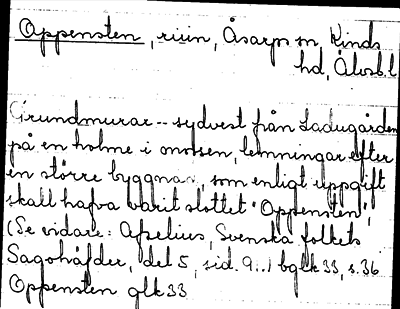 Oppensten, ruin, Åsarps sn, Kinds
hd, Älvsb.l
Grundmurar -- sydvest från Ladugården
på en holme i mossen, lemningar efter
en större byggnad, som enligt uppgift
skall hafva varit slottet "Oppensten",
(Se vidare: Afzelius, Svenska folkets
Sagohäfder, del 5, sid. 9...) bglk 33, s. 36
Oppensten glk 33